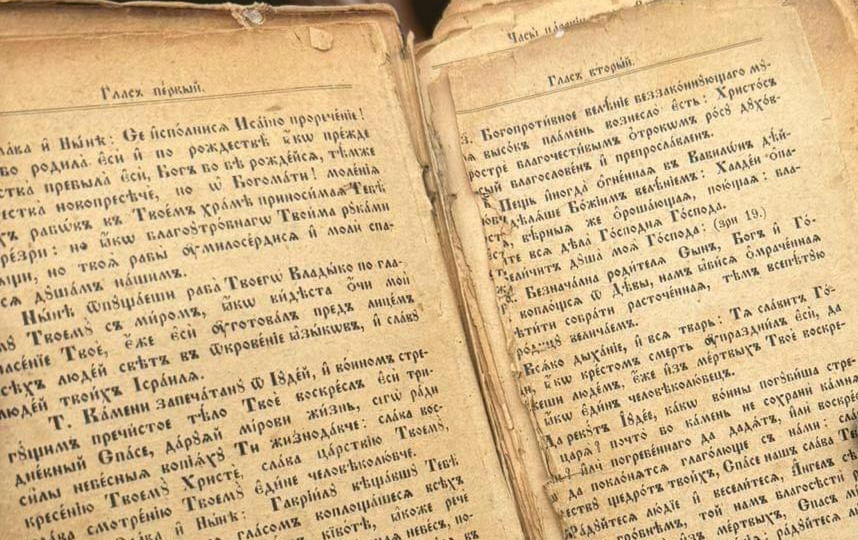 Гласъ пе́рвый.
ла́ва и҆ Ны́нѣ: Се и҆спо́лнисѧ И҆са́їно прорече́нїе!
во родила̀ є҆сѝ и҆ по рождествѣ̀ ꙗ҆́кѡ пре́жде
ства̀ пребыла̀ є҆сѝ, Бо́гъ бо бѣ̀ рожде́йсѧ, тѣ́мже
новопресѣчѐ, но ѽ Богома́ти! моле́нїѧ
ра̑бѡвъ въ Твое́мъ хра́мѣ приноси̑маѧ Тебѣ̀
ре́зри: но ꙗ҆́кѡ благоꙋтро́бнагѡ Твои́ма рꙋка́ми
но твоѧ̑ рабы̑ ᲂу҆милосе́рдисѧ и҆ молѝ спа-
сѧ дꙋша́мъ на́шымъ.
Ны́нѣ ѿпꙋща́еши раба̀ Твоего̀ Влады́ко по гла-
Твоемꙋ̀ съ ми́ромъ, ꙗ҆́кѡ ви́дѣста ѻ҆́чи моѝ
пасе́нїе Твоѐ, є҆́же є҆сѝ ᲂу҆гото́валъ пред̾ лице́мъ
всѣ́хъ люде́й свѣ́тъ въ ѿкрове́нїе ꙗ҆зы́кѡвъ, и҆ сла́вꙋ
люде́й твои́хъ І҆сра́илѧ.
Т. Ка́мени запеча́танꙋ ѿ І҆ꙋде́й, и҆ во́иномъ стре-
гꙋ́щымъ пречи́стое тѣ́ло Твоѐ воскре́слъ є҆сѝ три-
дне́вный Спа́се, да́рꙋѧй мі́рови жи́знь, сегѡ̀ ра́ди
си̑лы небе́сныѧ вопїѧ́хꙋ Ти жизнода́вче: сла́ва вос-
кресе́нїю Твоемꙋ̀ Христѐ, сла́ва ца́рствїю Твоемꙋ̀,
сла́ва смотре́нїю Твоемꙋ̀ є҆ди́не человѣколю́бче.
Сла́ва и҆ Ны́нѣ: Гаврїи́лꙋ вѣща́вшꙋ Тебѣ̀
гла́сомъ воплоща́шесѧ всѣ́хъ
кївѡ́тѣ, ꙗ҆́коже речѐ
небе́съ, по-
Часы̀
Гласъ вторы́й.
Богопроти́вное велѣ́нїе беззако́ннꙋющагѡ мꙋ-
высо́къ пла́мень вознесло̀ є҆́сть: Христо́съ
прострѐ благочести̑вымъ ѻ҆трокѡ́мъ ро́сꙋ дꙋхо́в-
благослове́нъ и҆ препросла́вленъ.
Пе́щь и҆ногда̀ ѻ҆́гненнаѧ въ Вавѷлѡ́нѣ дѣ́й-
дѣлѧ́ше Бо́жїимъ велѣ́нїемъ: Халде́и ѡ҆пал-
вѣ̑рныѧ же ѡ҆роша́ющаѧ, пою́щыѧ: бла-
те всѧ̑ дѣла̀ Госпо́днѧ Го́спода.
вели́читъ дꙋша̀ моѧ̀ Го́спода: (зри 19.)
Безнача́лна роди́телѧ Сы́нъ, Бо́гъ и҆ Го-
вопло́щсѧ ѿ Дѣ́вы, на́мъ ꙗ҆ви́сѧ ѡ҆мраче́ннаѧ
ѣти́ти собра́ти расточє́ннаѧ, тѣ́мъ всепѣ́тꙋю
велича́емъ.
Всѧ́ко дыха́нїе, и҆ всѧ̀ тва́рь: Тѧ̀ сла́витъ Го-
ꙗ҆́кѡ кре́стомъ сме́рть ᲂу҆праздни́лъ є҆сѝ, да
люде́мъ, є҆́же и҆з̾ ме́ртвыхъ Твоѐ воскре-
ꙗ҆́кѡ є҆ди́нъ человѣколю́бецъ.
Да рекꙋ́тъ І҆ꙋде́е, ка́кѡ во́ини погꙋби́ша стре-
царѧ̀? почто̀ бо ка́мень не сохранѝ ка́мнѧ
и҆лѝ погребе́ннаго да дадѧ́тъ, и҆лѝ воскре́с
да покло́нѧтсѧ глаго́люще съ на́ми: сла́
щедро́тъ твои́хъ, Спа́се на́шъ сла́ва Те
Ра́дꙋйтесѧ лю́дїе и҆ весели́тесѧ, А҆́нгелъ сѣ
гро́бнѣмъ, то́й на́мъ благовѣстѝ
и҆з̾ ме́ртвыхъ, Спа́съ
ра́дꙋйтесѧ